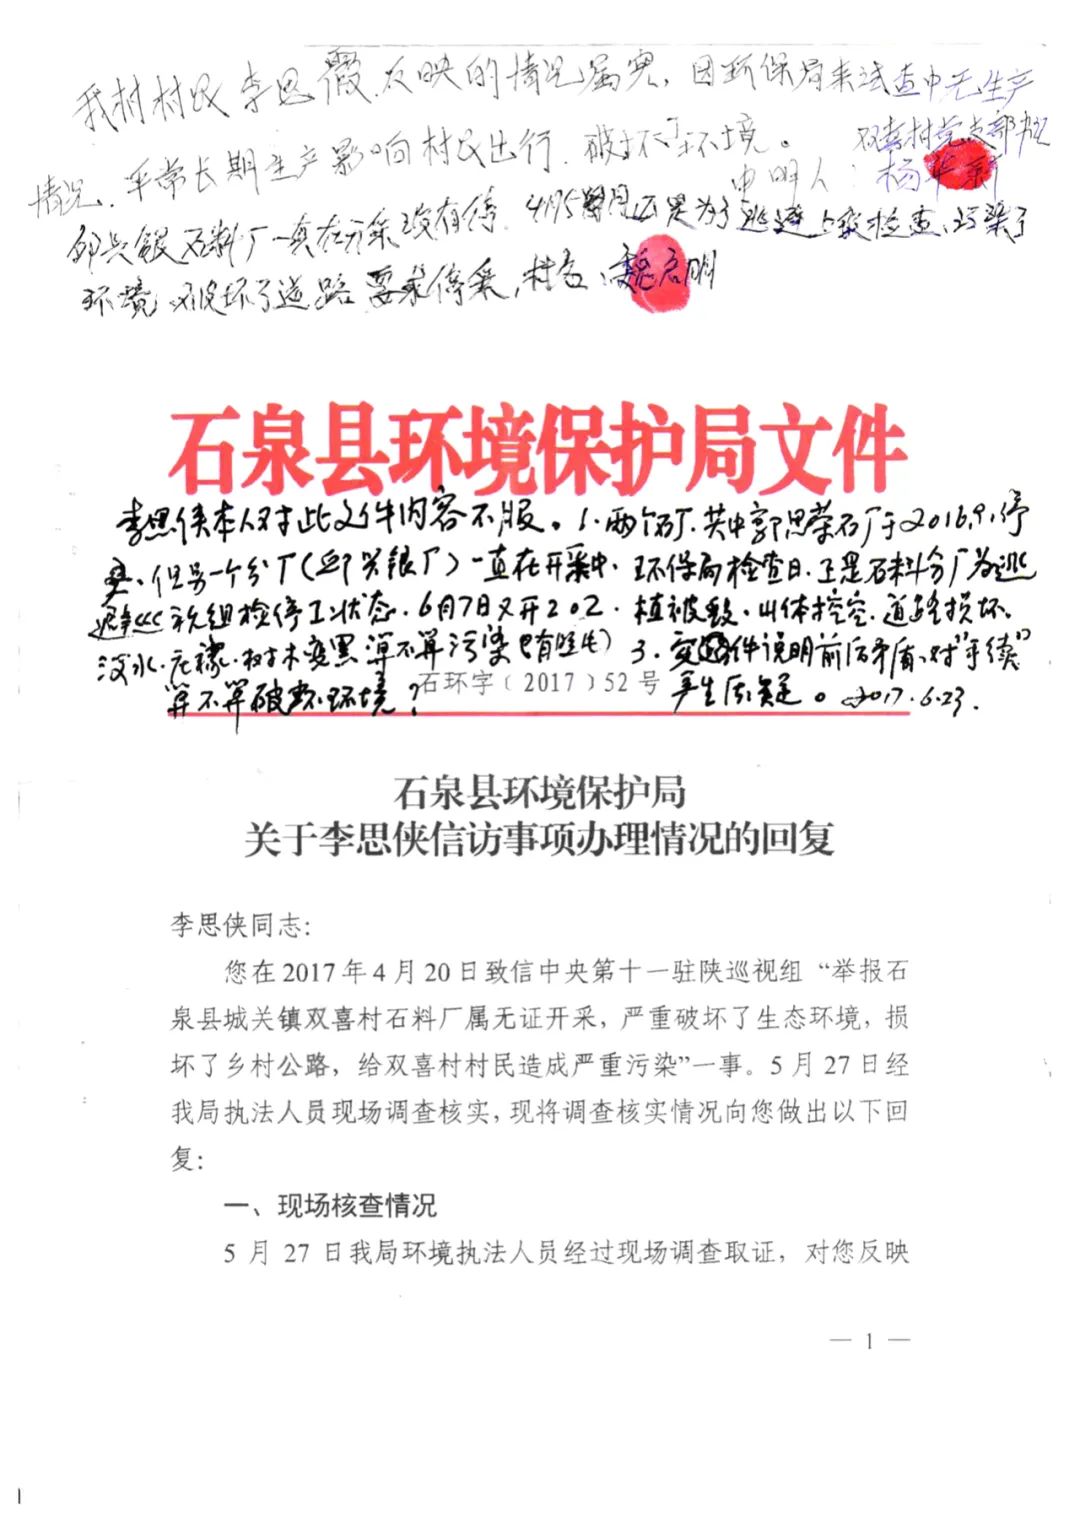 我村村民李思霞反映的情况属实,因环保局来试查中无生产
情况,平常长期生产影响村民出行,破坏了环境。 双喜村党支部书记
申明人:杨华新
邱兴银石料厂一直在开采没有停,4月5月间还是为了逃避上级检查,污染了
环境,破坏了道路要求停采,村民:魏启明
石泉县环境保护局文件
李思侠本人对此文件内容不服。1.两个石厂,其中郭思荣石厂于2016.9.停
采,但另一个分厂(邱兴银厂)一直在开采中,环保局检查日,正是石料分厂为逃
避巡视组检停工状态,6月7日又开工 2.植被毁,山体挖空,道路损坏,
没水,庄稼,树木变黑算不算污染(有照片) 3.文件说明前后矛盾,对"手续"
算不算破坏环境? 产生质疑。2017.6.23.
石环字〔2017〕52号
石泉县环境保护局
关于李思侠信访事项办理情况的回复
李思侠同志:
您在2017年4月20日致信中央第十一驻陕巡视组“举报石
泉县城关镇双喜村石料厂属无证开采,严重破坏了生态环境,损
坏了乡村公路,给双喜村村民造成严重污染”一事。5月27日经
我局执法人员现场调查核实,现将调查核实情况向您做出以下回
复:
一、现场核查情况
5月27日我局环境执法人员经过现场调查取证,对您反映
— 1 —